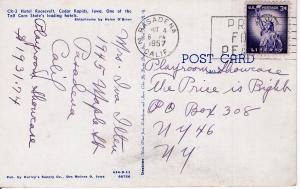 CR-3 Hotel Roosevelt, Cedar Rapids, Iowa. One of the
Tall Corn State's leading hotels.
Ektachrome by Helen O'Brien
Mrs. Iva Ilten
1945 Maple St
Pasadena
Calif
Playroom Showcase
PASADENA
6 PM
1957
CALIF.
PRAY
FOR
PEACE
U.S. POSTAGE
3¢
LIBERTY
POST CARD
Playroom Showcase
The Price is Right
PO Box 308
NY 46
NY
Pub. by Hurley's Supply Co., Des Moines 9, Iowa